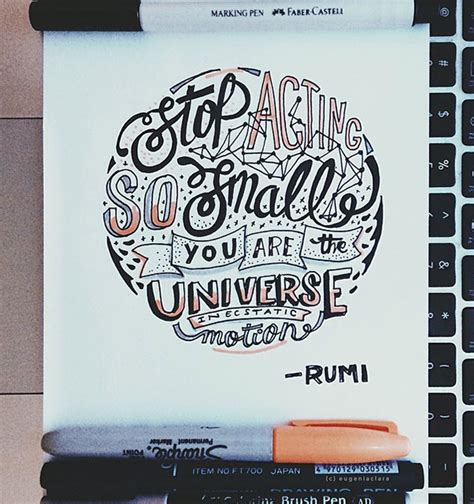 MARKING PEN FABER-CASTELL
Stop ACTING
SO Small
YOU ARE the
UNIVERSE
IN ECSTATIC
motion
-RUMI
Sharpie
Permanent Marker
POINT
ITEM NO.FT700 JAPAN
4 970129 030515
(c) eugeniaclara
Coloring Brush Pen